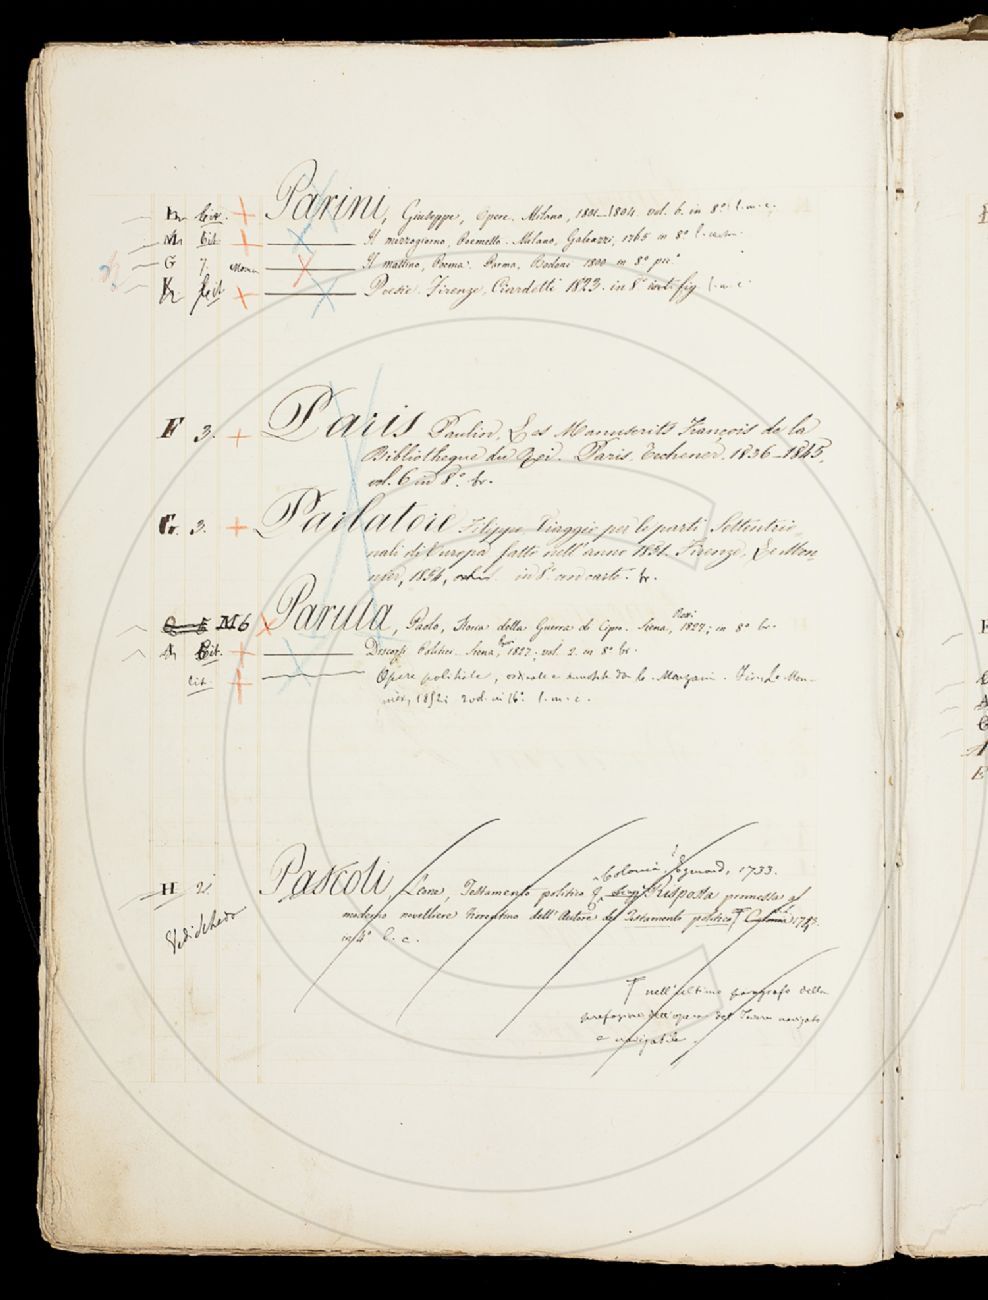 Parini, Giuseppe, Opere. Milano, 1801-1804. vol. 6. in 8.° l. m. c.
M Il mezzogiorno, Poemetto. Milano, Galeazzi, 1765 in 8°
G 7 Il mattino, Poema. Parma, Bodoni 1800 in 8° pic.°
Poesie. Firenze, Ciardetti 1823. in 8° fig.
F 3. Paris Paulin, Les Manuscrits François de la
Bibliotheque du Roi. Paris, Techener, 1836-1845,
vol. 6 in 8.° br.
G. 3. Parlatore Filippo Viaggio per le parti Settentrio-
nali di Europa fatto nell'anno 1851. Firenze, Le Mon-
nier, 1854, in 8.° con carte. br.
M 6 Paruta, Paolo, Storia della Guerra di Cipro. Siena, Rossi 1827; in 8° br.
A Discorsi Politici. Siena, 1827; vol. 2. in 8° br.
Opere politiche, ordinate e annotate da C. Monzani. Le Mon-
nier, 1852; 2 vol. in 16.° l. m. c.
Colonia, 1733.
H 2. Pascoli, Leone, Testamento politico Risposta promessa al
moderno novelliere Fiorentino dell'Autore del Testamento politico
in 4° l. c.
Vedi Schede
nell'ultimo paragrafo della
prefazione all'opera del Tevere navigato
e navigabile.